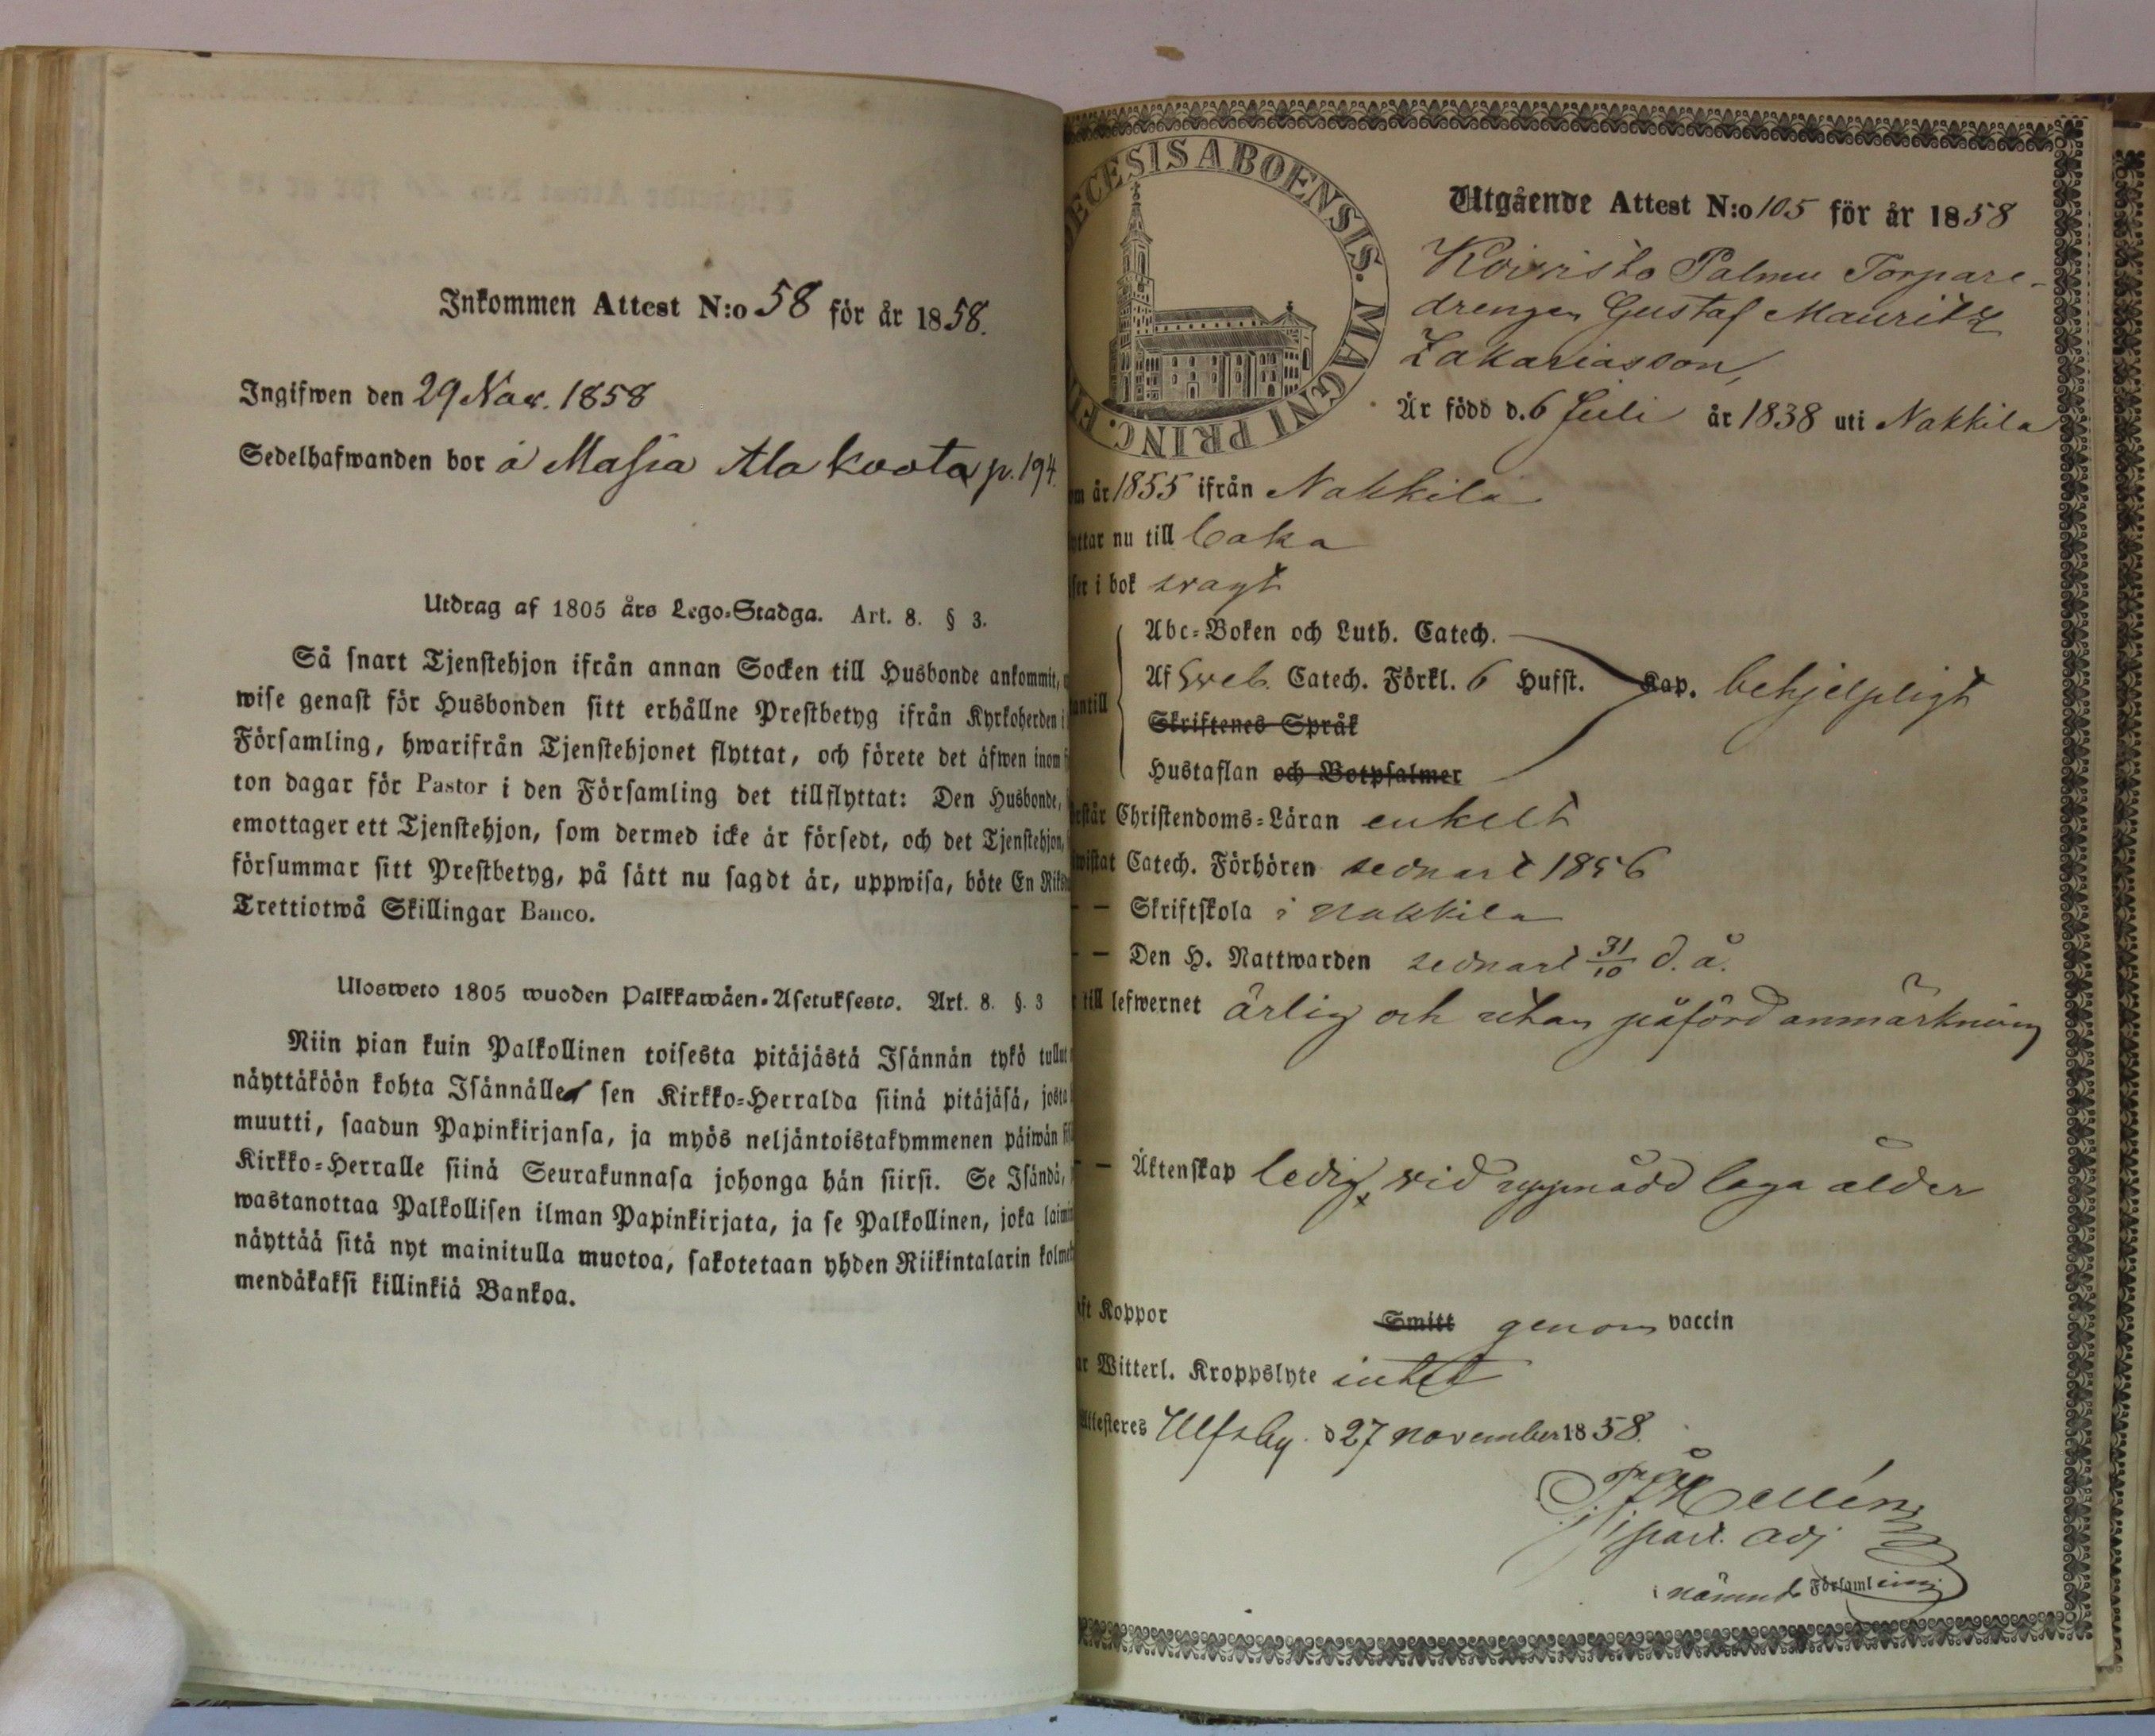 Inkommen Attest N:o 58 för år 1858.
Ingifwen den 29 Nov. 1858
Sedelhafwanden bor å Massia Ala koota p. 194.
Utdrag af 1805 års Lego-Stadga. Art. 8. § 3.
Så snart Tjenstehjon ifrån annan Socken till Husbonde ankommit,
wise genast för Husbonden sitt erhållne Prestbetyg ifrån Kyrkoherden i
Församling, hwarifrån Tjenstehjonet flyttat, och förete det äfwen inom
ton dagar för Pastor i den Församling det tillflyttat: Den Husbonde,
emottager ett Tjenstehjon, som dermed icke är försedt, och det Tjenstehjon,
försummar sitt Prestbetyg, på sätt nu sagdt är, uppwisa, böte En Riks
Trettiotwå Skillingar Banco.
Ulosweto 1805 wuoden Palkkawäen-Asetuksesta. Art. 8. §. 3
Niin pian kuin Palkollinen toisesta pitäjästä Isännän tykö tullut
näyttäköön kohta Isännälle sen Kirkko-Herralda siinä pitäjäsä, josta
muutti, saadun Papinkirjansa, ja myös neljäntoistakymmenen päiwän
Kirkko-Herralle siinä Seurakunnasa johonga hän siirsi. Se Isändä,
wastanottaa Palkollisen ilman Papinkirjata, ja se Palkollinen, joka laimin
näyttää sitä nyt mainitulla muotoa, sakotetaan yhden Riikintalarin kolme
mendäkaksi killinkiä Bankoa.
ECESIS ABOENSIS. MAGNI PRINC. FI
Utgående Attest N:o 105 för år 1858
Koivisto Palmu Torpare-
drengen Gustaf Mauritz
Zakariasson,
Är född d. 6 Juli år 1838 uti Nakkila
m år 1855 ifrån Nakkila
ttar nu till
ser i bok svagt
Abc-Boken och Luth. Catech.
Af Sveb. Catech. Förkl. 6 Hufst. Kap. behjelpligt
antill
Skriftenes Språk
Hustaflan och Botpsalmer
rstår Christendoms-Läran enkelt
wistat Catech. Förhören sednast 1856
— Skriftskola i Nakkila
— Den H. Nattwarden sednast 31/10 d. å.
till lefwernet ärlig och utan påförd anmärkning
— Äktenskap ledig, vid uppnådd laga ålder
ft Koppor Smitt genom vaccin
ar Witterl. Kroppslyte intet
Attesteres Ulfsby. d 27 november 1858.
past. adj
i nämnde Församling